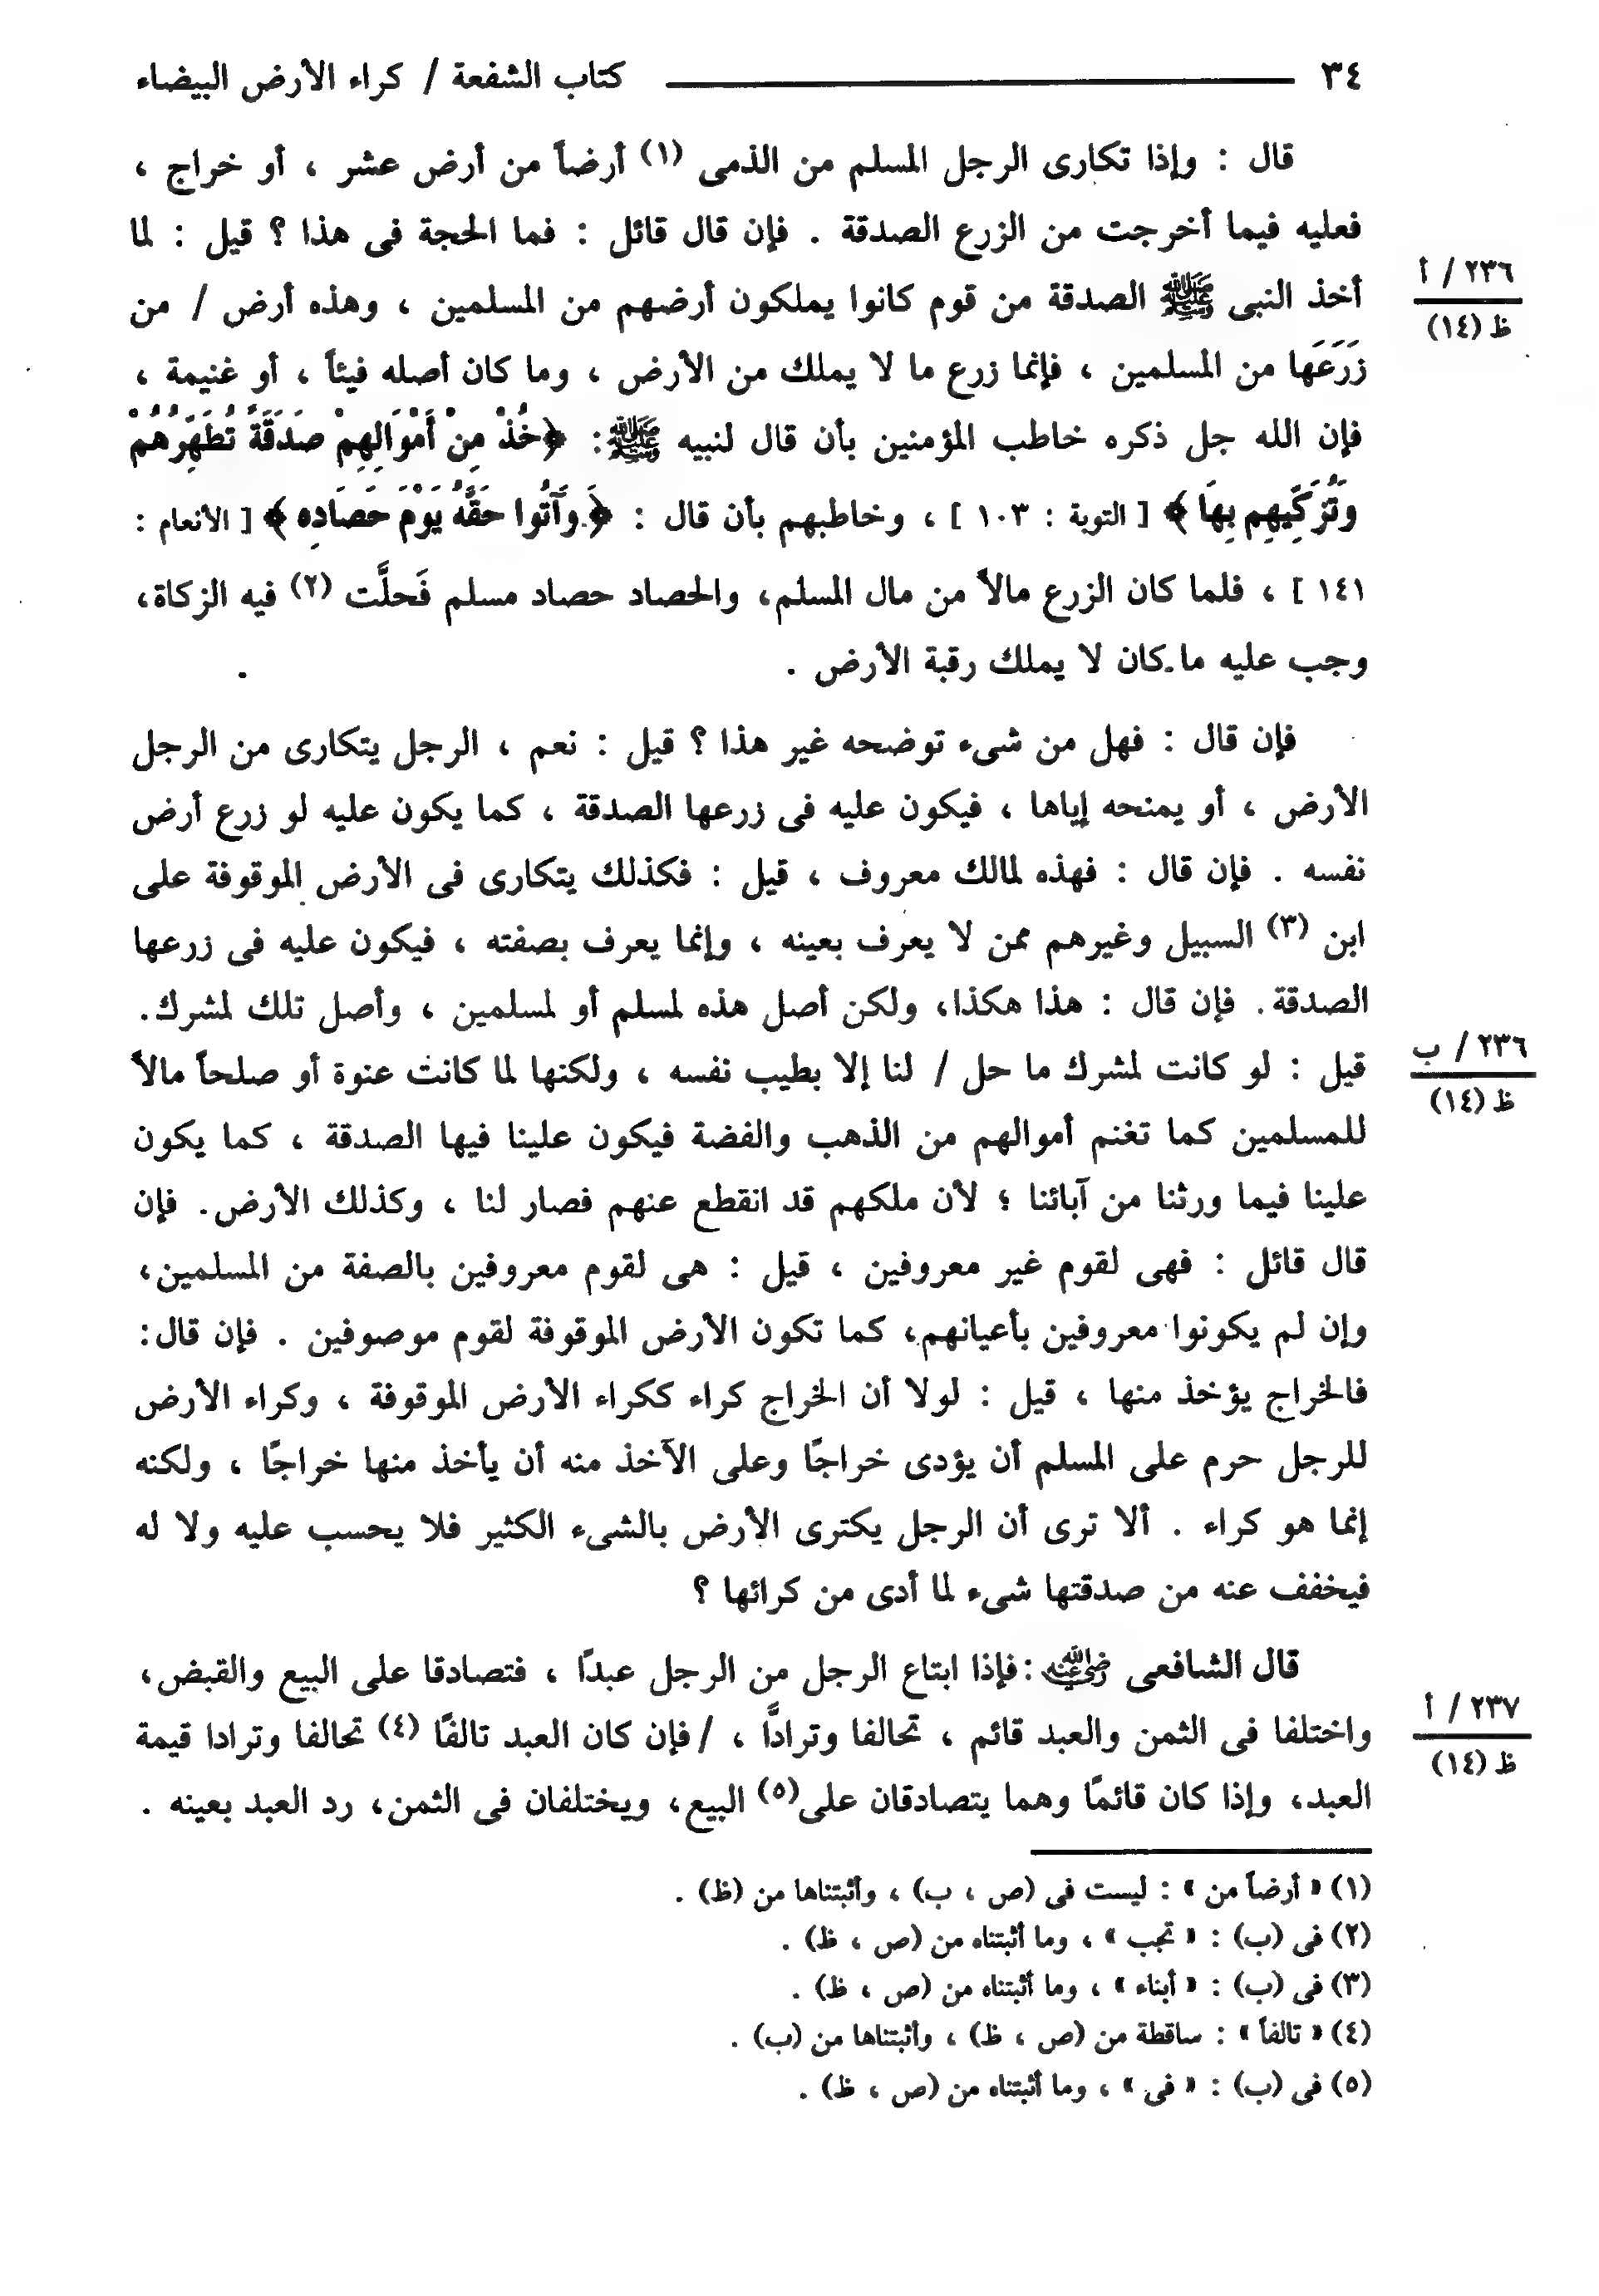 ٣٤ كتاب الشفعة / كراء الأرض البيضاء
قال : وإذا تكارى الرجل المسلم من الذمى (١) أرضاً من أرض عشر ، أو خراج ،
فعليه فيما أخرجت من الزرع الصدقة . فإن قال قائل : فما الحجة فى هذا ؟ قيل : لما
أخذ النبى ﷺ الصدقة من قوم كانوا يملكون أرضهم من المسلمين ، وهذه أرض / من
٢٣٦ / أ
ظ (١٤)
زَرَعَها من المسلمين ، فإنما زرع ما لا يملك من الأرض ، وما كان أصله فيئاً ، أو غنيمة ،
فإن الله جل ذكره خاطب المؤمنين بأن قال لنبيه ﷺ: ﴿خُذْ مِنْ أَمْوَالِهِمْ صَدَقَةً تُطَهِّرُهُمْ
وَتُزَكِّيهِم بِهَا﴾ [ التوبة : ١٠٣ ] ، وخاطبهم بأن قال : ﴿وَآتُوا حَقَّهُ يَوْمَ حَصَادِهِ﴾ [ الأنعام :
١٤١ ] ، فلما كان الزرع مالاً من مال المسلم، والحصاد حصاد مسلم فَحلَّت (٢) فيه الزكاة،
وجب عليه ما كان لا يملك رقبة الأرض .
فإن قال : فهل من شىء توضحه غير هذا ؟ قيل : نعم ، الرجل يتكارى من الرجل
الأرض ، أو يمنحه إياها ، فيكون عليه فى زرعها الصدقة ، كما يكون عليه لو زرع أرض
نفسه . فإن قال : فهذه لمالك معروف ، قيل : فكذلك يتكارى فى الأرض الموقوفة على
ابن (٣) السبيل وغيرهم ممن لا يعرف بعينه ، وإنما يعرف بصفته ، فيكون عليه فى زرعها
الصدقة. فإن قال : هذا هكذا، ولكن أصل هذه لمسلم أو لمسلمين ، وأصل تلك لمشرك.
قيل : لو كانت لمشرك ما حل / لنا إلا بطيب نفسه ، ولكنها لما كانت عنوة أو صلحاً مالاً
٢٣٦ / ب
ظ (١٤)
للمسلمين كما تغنم أموالهم من الذهب والفضة فيكون علينا فيها الصدقة ، كما يكون
علينا فيما ورثنا من آبائنا ؛ لأن ملكهم قد انقطع عنهم فصار لنا ، وكذلك الأرض. فإن
قال قائل : فهى لقوم غير معروفين ، قيل : هى لقوم معروفين بالصفة من المسلمين،
وإن لم يكونوا معروفين بأعيانهم، كما تكون الأرض الموقوفة لقوم موصوفين . فإن قال:
فالخراج يؤخذ منها ، قيل : لولا أن الخراج كراء ككراء الأرض الموقوفة ، وكراء الأرض
للرجل حرم على المسلم أن يؤدى خراجًا وعلى الآخذ منه أن يأخذ منها خراجًا ، ولكنه
إنما هو كراء . ألا ترى أن الرجل يكترى الأرض بالشىء الكثير فلا يحسب عليه ولا له
فيخفف عنه من صدقتها شىء لما أدى من كرائها ؟
قال الشافعى رضي الله عنه : فإذا ابتاع الرجل من الرجل عبدًا ، فتصادقا على البيع والقبض،
واختلفا فى الثمن والعبد قائم ، تحالفا وترادًّا ، / فإن كان العبد تالفًا (٤) تحالفا وترادا قيمة
٢٣٧ / أ
ظ (١٤)
العبد، وإذا كان قائمًا وهما يتصادقان على(٥) البيع، ويختلفان فى الثمن، رد العبد بعينه .
(١) « أرضاً من » : ليست فى (ص ، ب) ، وأثبتناها من (ظ) .
(٢) فى (ب) : « تجب » ، وما أثبتناه من (ص ، ظ) .
(٣) فى (ب) : « أبناء » ، وما أثبتناه من (ص ، ظ) .
(٤) « تالفاً » : ساقطة من (ص ، ظ) ، وأثبتناها من (ب) .
(٥) فى (ب) : « فى » ، وما أثبتناه من (ص ، ظ) .